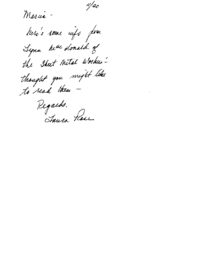 2/20
Marcia -
Here's some info from
Lynn MacDonald of
the Sheet Metal Workers:
thought you might like
to read them -
Regards,
Laura